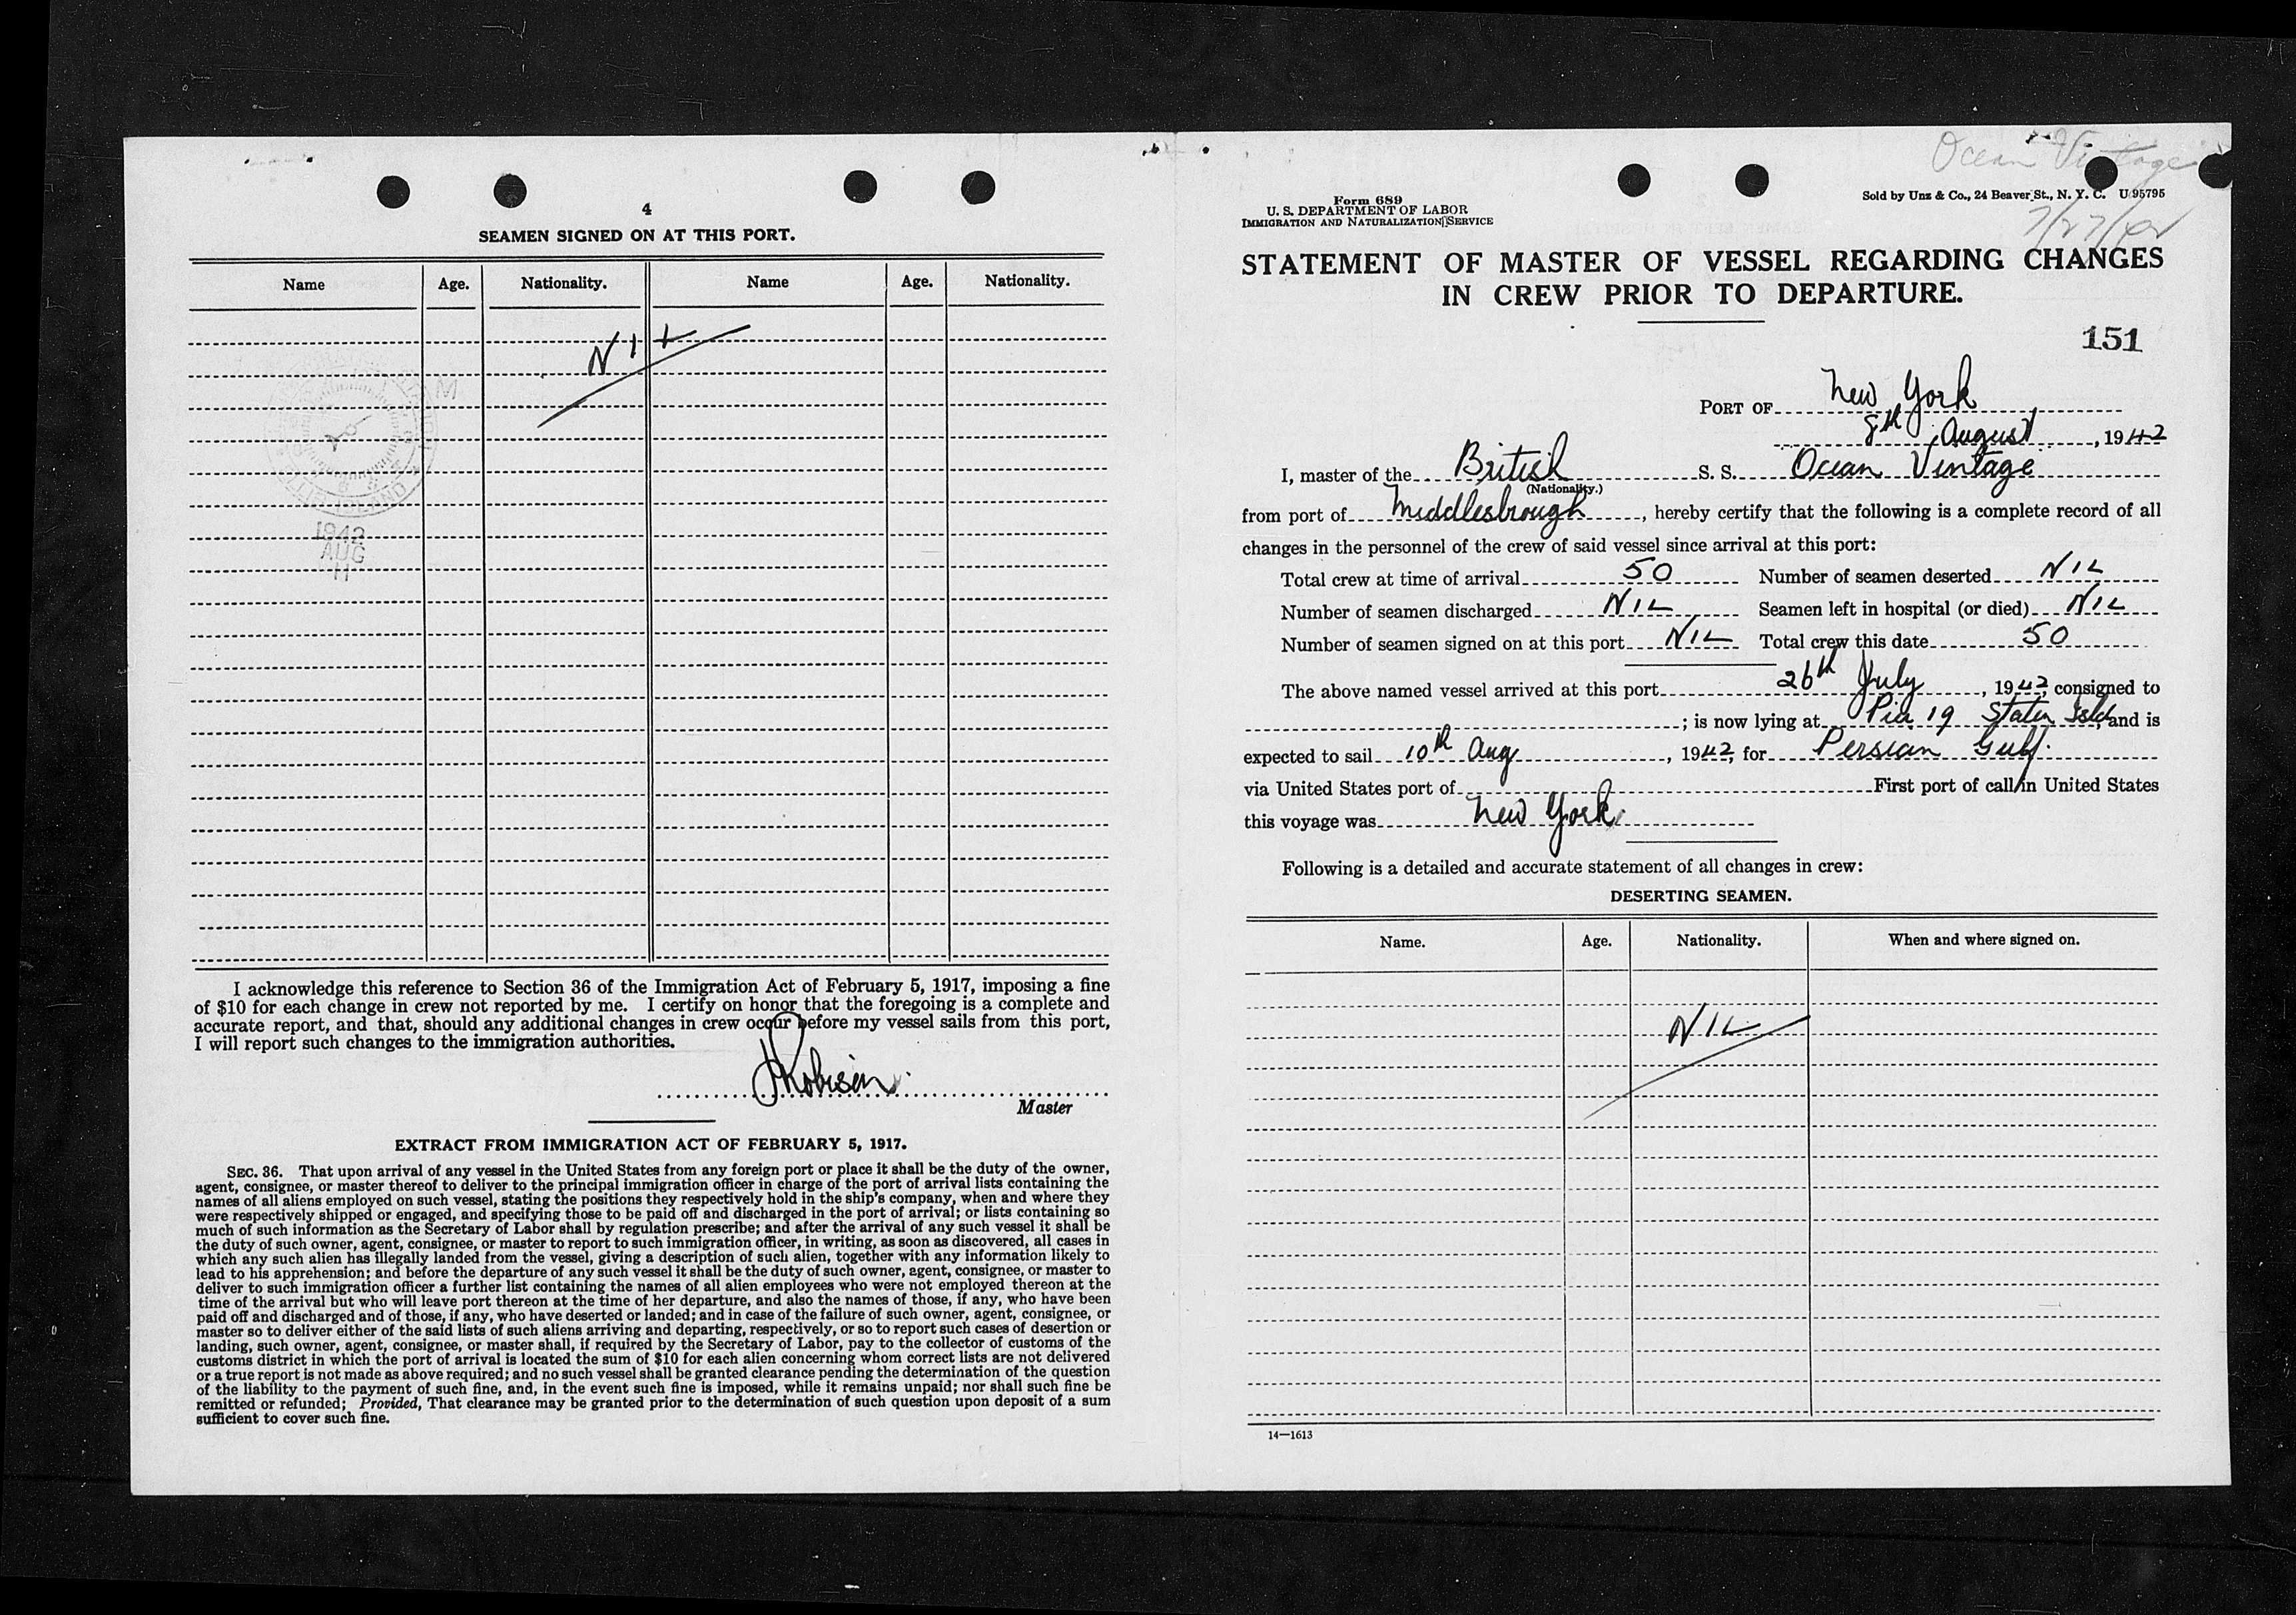 4
SEAMEN SIGNED ON AT THIS PORT.
Name Age. Nationality. Name Age. Nationality.
NIL
1942
AUG
11
I acknowledge this reference to Section 36 of the Immigration Act of February 5, 1917, imposing a fine
of $10 for each change in crew not reported by me. I certify on honor that the foregoing is a complete and
accurate report, and that, should any additional changes in crew occur before my vessel sails from this port,
I will report such changes to the immigration authorities.
Master
EXTRACT FROM IMMIGRATION ACT OF FEBRUARY 5, 1917.
SEC. 36. That upon arrival of any vessel in the United States from any foreign port or place it shall be the duty of the owner,
agent, consignee, or master thereof to deliver to the principal immigration officer in charge of the port of arrival lists containing the
names of all aliens employed on such vessel, stating the positions they respectively hold in the ship's company, when and where they
were respectively shipped or engaged, and specifying those to be paid off and discharged in the port of arrival; or lists containing so
much of such information as the Secretary of Labor shall by regulation prescribe; and after the arrival of any such vessel it shall be
the duty of such owner, agent, consignee, or master to report to such immigration officer, in writing, as soon as discovered, all cases in
which any such alien has illegally landed from the vessel, giving a description of such alien, together with any information likely to
lead to his apprehension; and before the departure of any such vessel it shall be the duty of such owner, agent, consignee, or master to
deliver to such immigration officer a further list containing the names of all alien employees who were not employed thereon at the
time of the arrival but who will leave port thereon at the time of her departure, and also the names of those, if any, who have been
paid off and discharged and of those, if any, who have deserted or landed; and in case of the failure of such owner, agent, consignee, or
master so to deliver either of the said lists of such aliens arriving and departing, respectively, or so to report such cases of desertion or
landing, such owner, agent, consignee, or master shall, if required by the Secretary of Labor, pay to the collector of customs of the
customs district in which the port of arrival is located the sum of $10 for each alien concerning whom correct lists are not delivered
or a true report is not made as above required; and no such vessel shall be granted clearance pending the determination of the question
of the liability to the payment of such fine, and, in the event such fine is imposed, while it remains unpaid; nor shall such fine be
remitted or refunded; Provided, That clearance may be granted prior to the determination of such question upon deposit of a sum
sufficient to cover such fine.
Ocean Vintage
Form 689
U. S. DEPARTMENT OF LABOR
IMMIGRATION AND NATURALIZATION SERVICE
Sold by Unz & Co., 24 Beaver St., N. Y. C. U 95795
7/27/42
STATEMENT OF MASTER OF VESSEL REGARDING CHANGES
IN CREW PRIOR TO DEPARTURE.
151
PORT OF New York
8th August, 1942
I, master of the British S. S. Ocean Vintage
(Nationality.)
from port of Middlesbrough, hereby certify that the following is a complete record of all
changes in the personnel of the crew of said vessel since arrival at this port:
Total crew at time of arrival 50 Number of seamen deserted NIL
Number of seamen discharged NIL Seamen left in hospital (or died) NIL
Number of seamen signed on at this port NIL Total crew this date 50
The above named vessel arrived at this port 26th July, 1942, consigned to
; is now lying at Pier 19 Staten Isld, and is
expected to sail 10th Aug, 1942, for Persian Gulf.
via United States port of First port of call in United States
this voyage was New York
Following is a detailed and accurate statement of all changes in crew:
DESERTING SEAMEN.
Name. Age. Nationality. When and where signed on.
NIL
14—1613